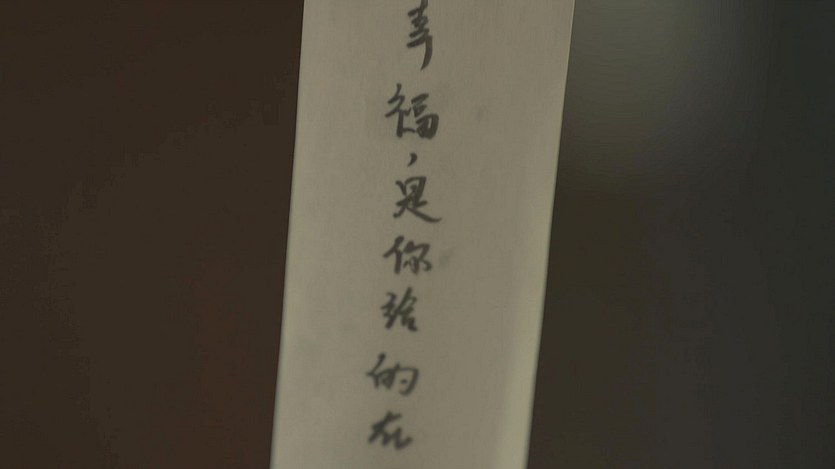 幸福，是你给的在